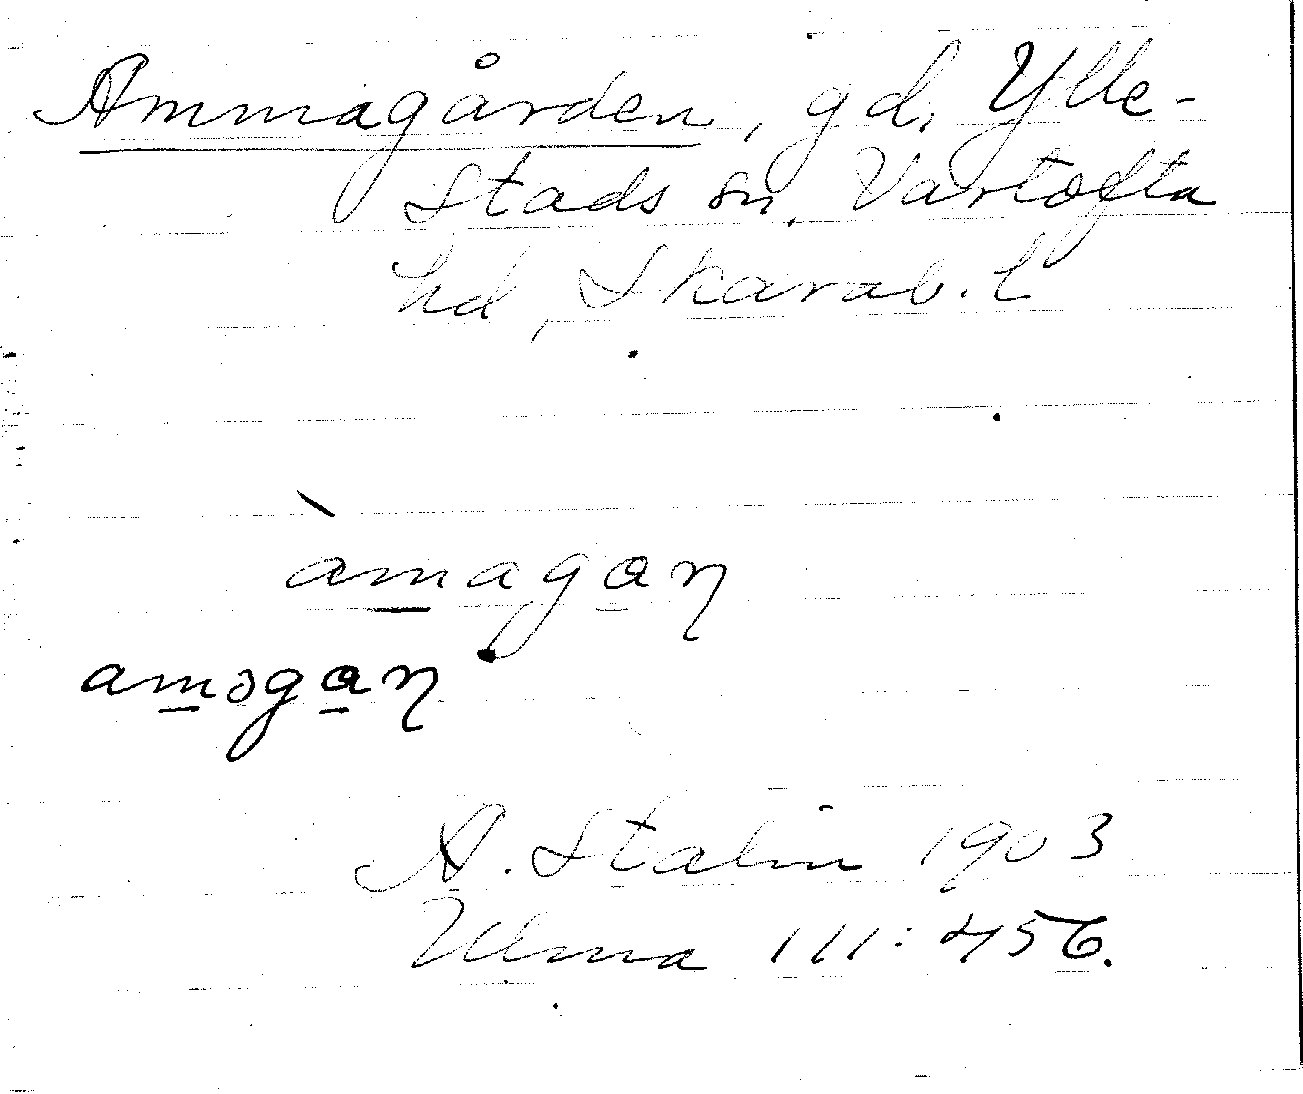 Ammagården, gd, Ylle-
stads sn, Vartofta
hd, Skarab. l
àmagaɳ
aməgaɳ
A. Stalin 1903
Ulma 111:456.